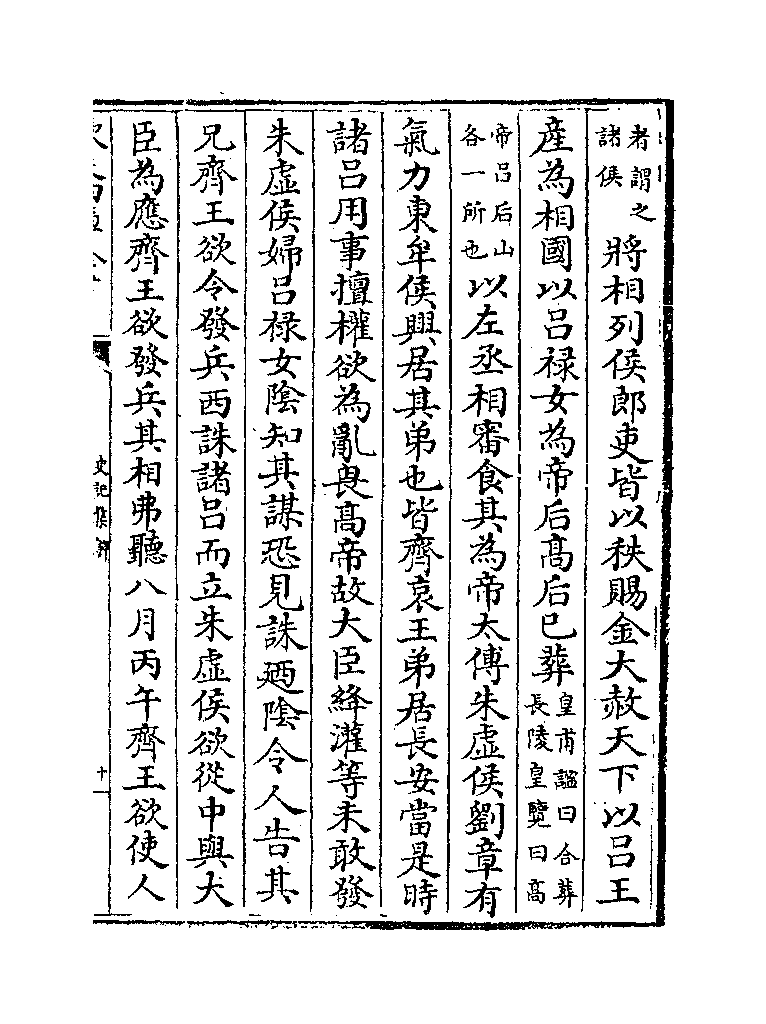 者謂之諸侯將相列侯郎吏皆以秩賜金大赦天下以吕王
産為相國以吕禄女為帝后髙后已葬皇甫謐曰合葬長陵皇覽曰髙
帝吕后山各一所也以左丞相審食其為帝太傅朱虚侯劉章有
氣力東牟侯興居其弟也皆齊哀王弟居長安當是時
諸吕用事擅權欲為亂畏髙帝故大臣絳灌等未敢發
朱虚侯婦吕禄女隂知其謀恐見誅廼隂令人告其
兄齊王欲令發兵西誅諸吕而立朱虚侯欲從中與大
臣為應齊王欲發兵其相弗聽八月丙午齊王欲使人
史記集解
十一